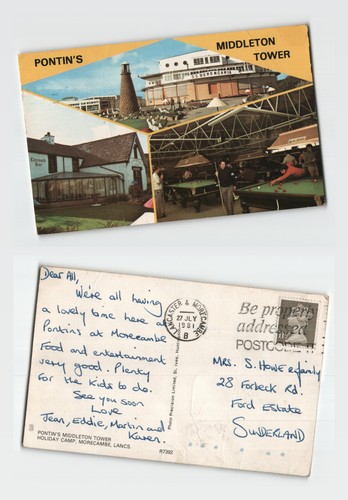 PONTIN'S
MIDDLETON
TOWER
Dear All,
We're all having
a lovely time here at
Pontins at Morecambe
Food and entertainment
very good. Plenty
for the kids to do.
See you soon
Love
Jean, Eddie, Martin and
Karen.
PONTIN'S MIDDLETON TOWER
HOLIDAY CAMP, MORECAMBE, LANCS
R7392
Photo Precision Limited, St. Ives,
LANCASTER & MORECAMBE
27 JLY
1981
B
Be properly
addressed
POSTCODE IT
MRS. S. Howe + family
28 Forbeck Rd.
Ford Estate
SUNDERLAND